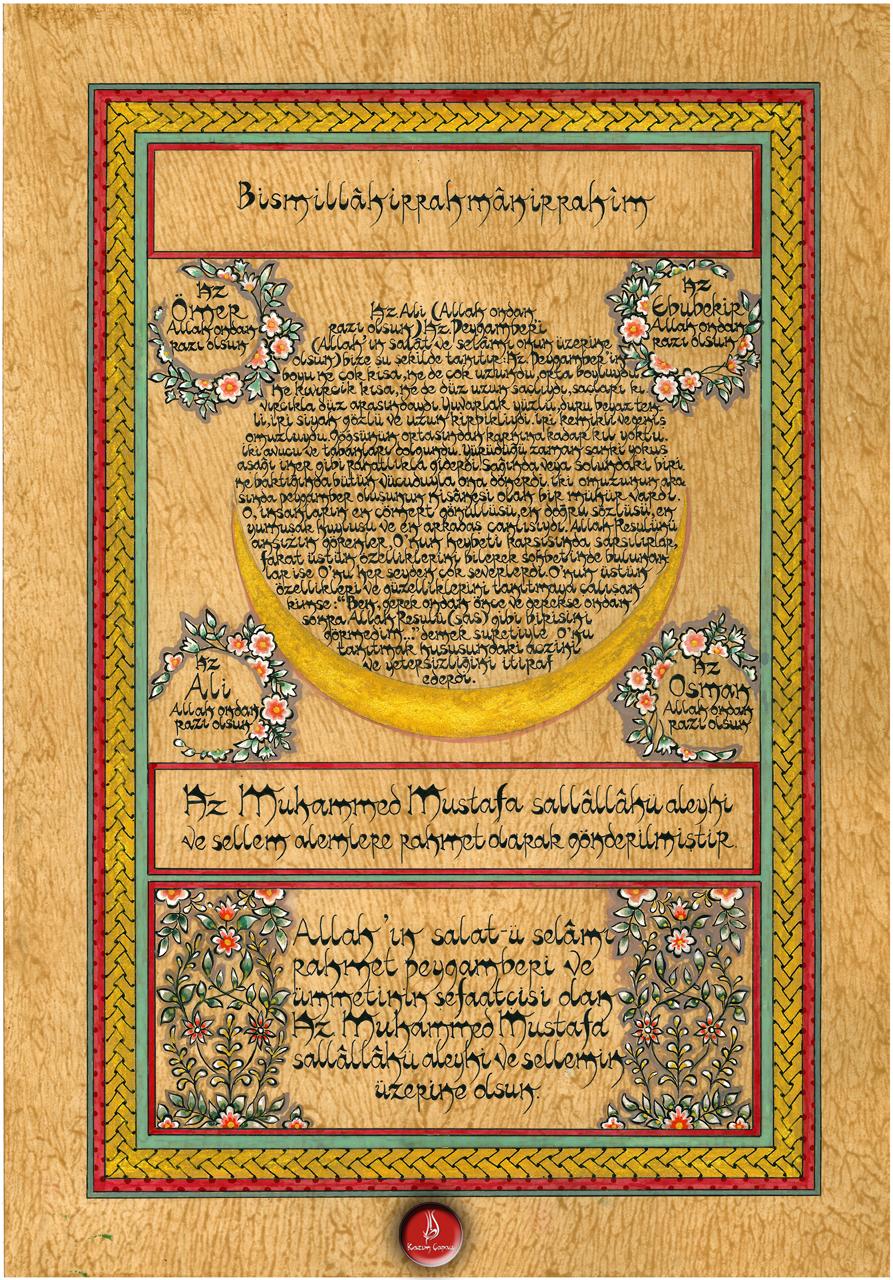 Bismillâhirrahmânirrahîm
Hz
Ömer
Allah ondan
razı olsun
Hz
Ebubekir
Allah ondan
razı olsun
Hz Ali (Allah ondan
razı olsun) Hz Peygamberi
(Allah'ın salât ve selâmı onun üzerine
olsun) bize şu şekilde tanıtır: Hz. Peygamber'in
boyu ne çok kısa, ne de çok uzundu, orta boyluydu
Ne kıvırcık kısa, ne de düz uzun saçlıydı, saçları kı
vırcıkla düz arasındaydı. Yuvarlak yüzlü, duru beyaz ten
li, iri siyah gözlü ve uzun kirpikliydi. İri kemikli ve geniş
omuzluydu. Göğsünün ortasından karnına kadar kıl yoktu.
İki avucu ve tabanları dolgundu. Yürüdüğü zaman sanki yokuş
aşağı iner gibi rahatlıkla giderdi. Sağında veya solundaki biri
ne baktığında bütün vücuduyla ona dönerdi. İki omuzunun ara
sında peygamber oluşunun nişânesi olan bir mühür vardı.
O, insanların en cömert gönüllüsü, en doğru sözlüsü, en
yumuşak huylusu ve en arkadaş canlısıydı. Allah Resulünü
ansızın görenler, O'nun heybeti karşısında sarsılırlar,
fakat üstün özelliklerini bilerek sohbetinde bulunan
lar ise O'nu her şeyden çok severlerdi. O'nun üstün
özellikleri ve güzelliklerini tanıtmaya çalışan
kimse: "Ben, gerek ondan önce ve gerekse ondan
sonra Allah Resulü (sas) gibi birisini
görmedim..." demek suretiyle O'nu
tanıtmak hususundaki aczini
ve yetersizliğini itiraf
ederdi.
Hz
Ali
Allah ondan
razı olsun
Hz
Osman
Allah ondan
razı olsun
Hz Muhammed Mustafa sallâllâhü aleyhi
ve sellem alemlere rahmet olarak gönderilmiştir.
Allah'ın salat-ü selâmı
rahmet peygamberi ve
ümmetinin şefaatcisi olan
Hz Muhammed Mustafa
sallâllâhü aleyhi ve sellemin
üzerine olsun.